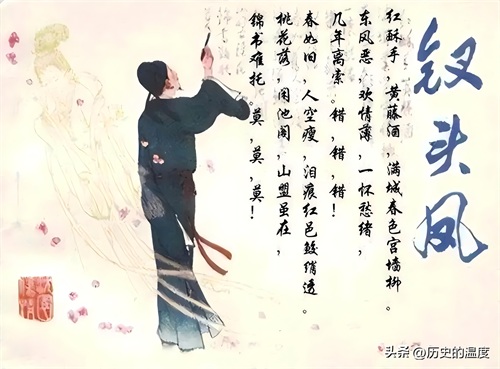 钗头凤
红酥手，黄藤酒，满城春色宫墙柳。
东风恶，欢情薄，一怀愁绪，
几年离索。错，错，错！
春如旧，人空瘦，泪痕红色鲛绡透。
桃花落，闲池阁，山盟虽在，
锦书难托。莫，莫，莫！
头条 @历史的温度